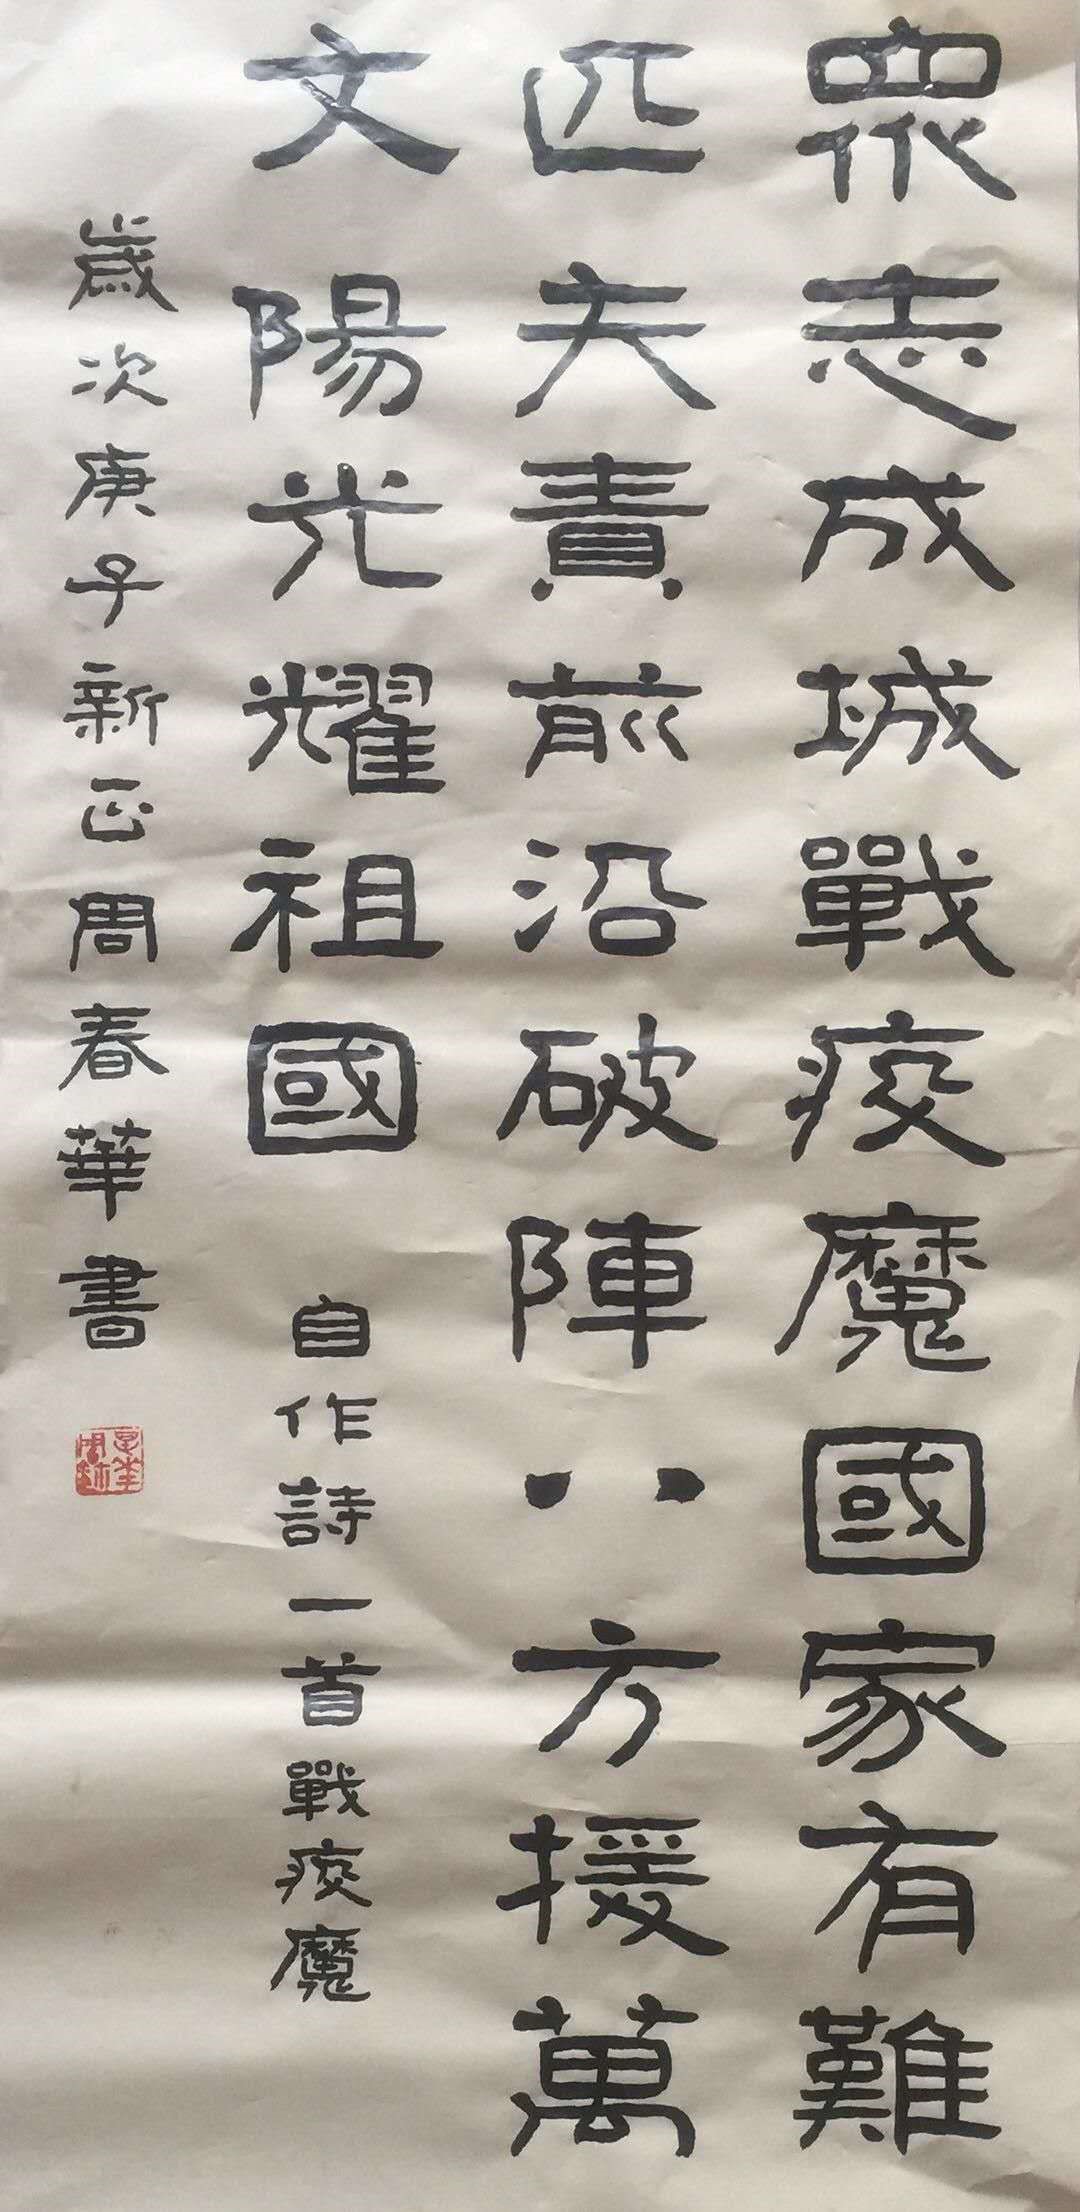 眾志成城戰疫魔國家有難
匹夫責前沿破陣八方援萬
文陽光耀祖國
自作詩一首戰疫魔
歲次庚子新正周春華書